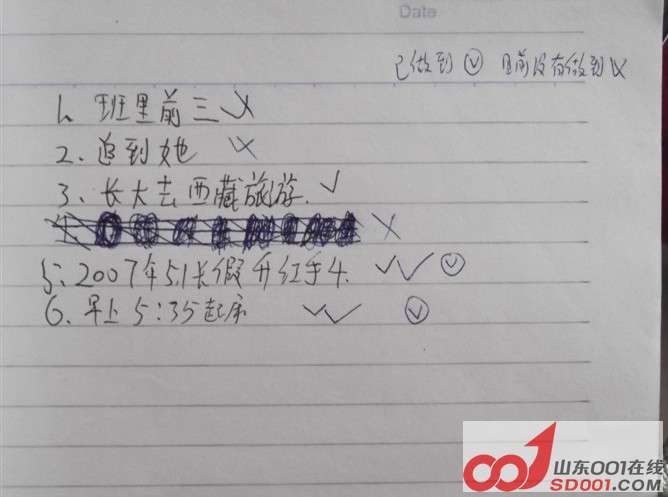 Date
已做到 ✓ 目前没有做到 ×
1、班里前三 ×
2、追到她 ×
3、长大去西藏旅游. ✓
×
5、2007年5.1长假升红手4. ✓✓ ✓
6、早上5:35起床 ✓✓ ✓
山东001在线
SD001.COM